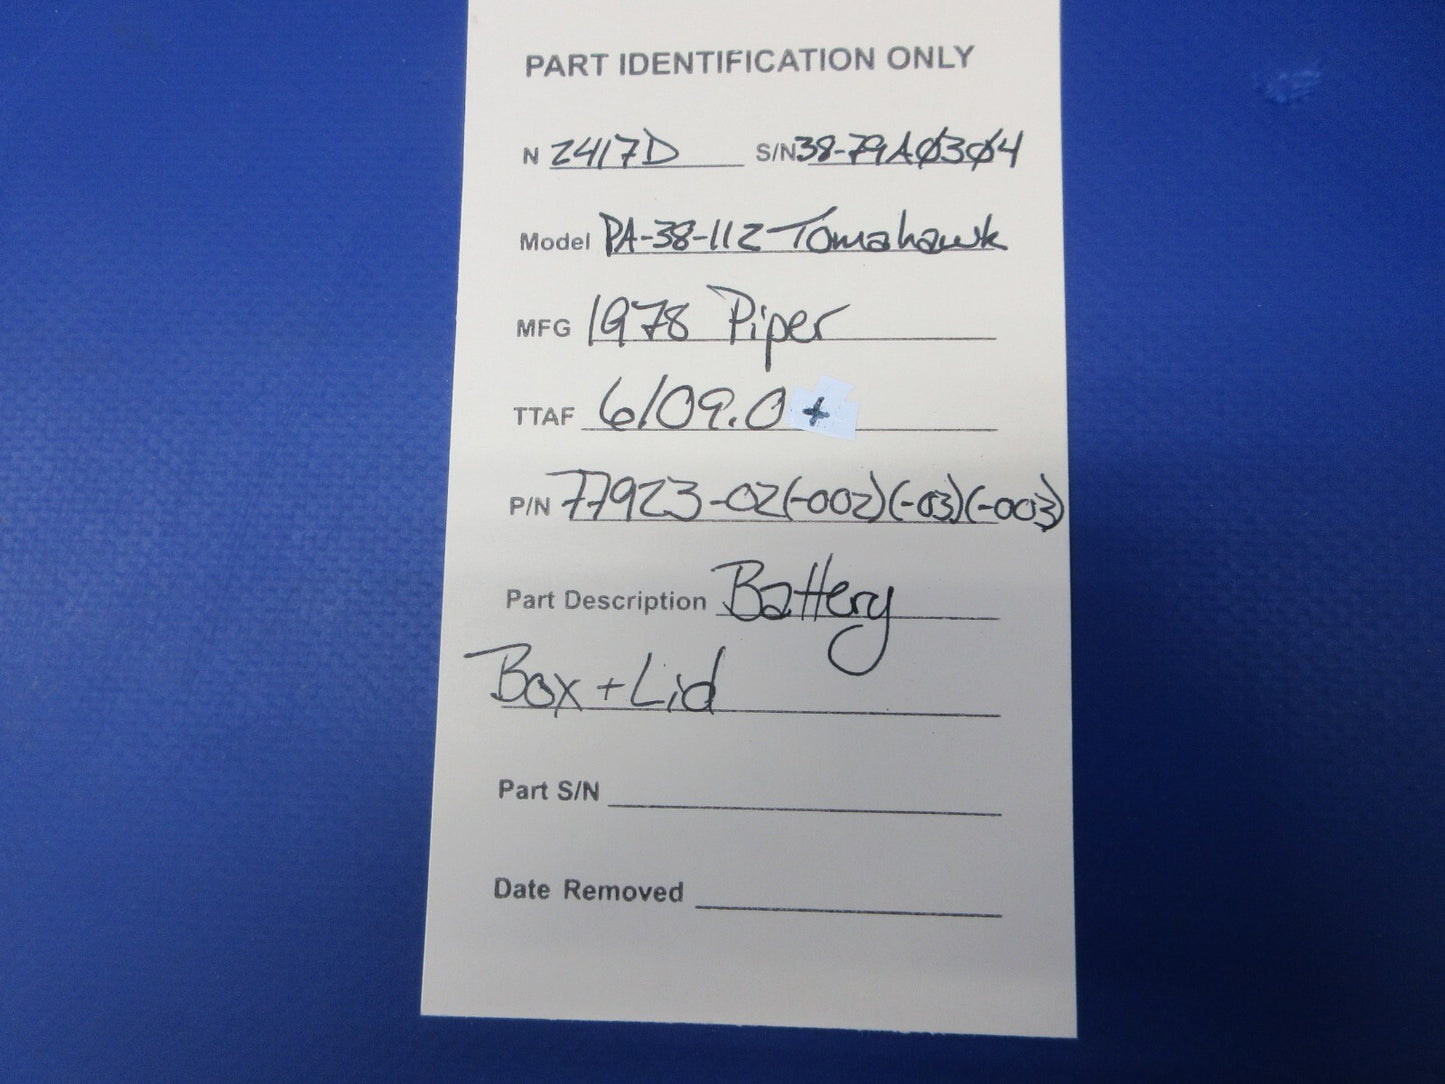 PART IDENTIFICATION ONLY
N 2417D S/N 38-79AØ3Ø4
Model PA-38-112 Tomahawk
MFG 1978 Piper
TTAF 6109.0 +
P/N 77923-02(-002)(-03)(-003)
Part Description Battery
Box + Lid
Part S/N
Date Removed